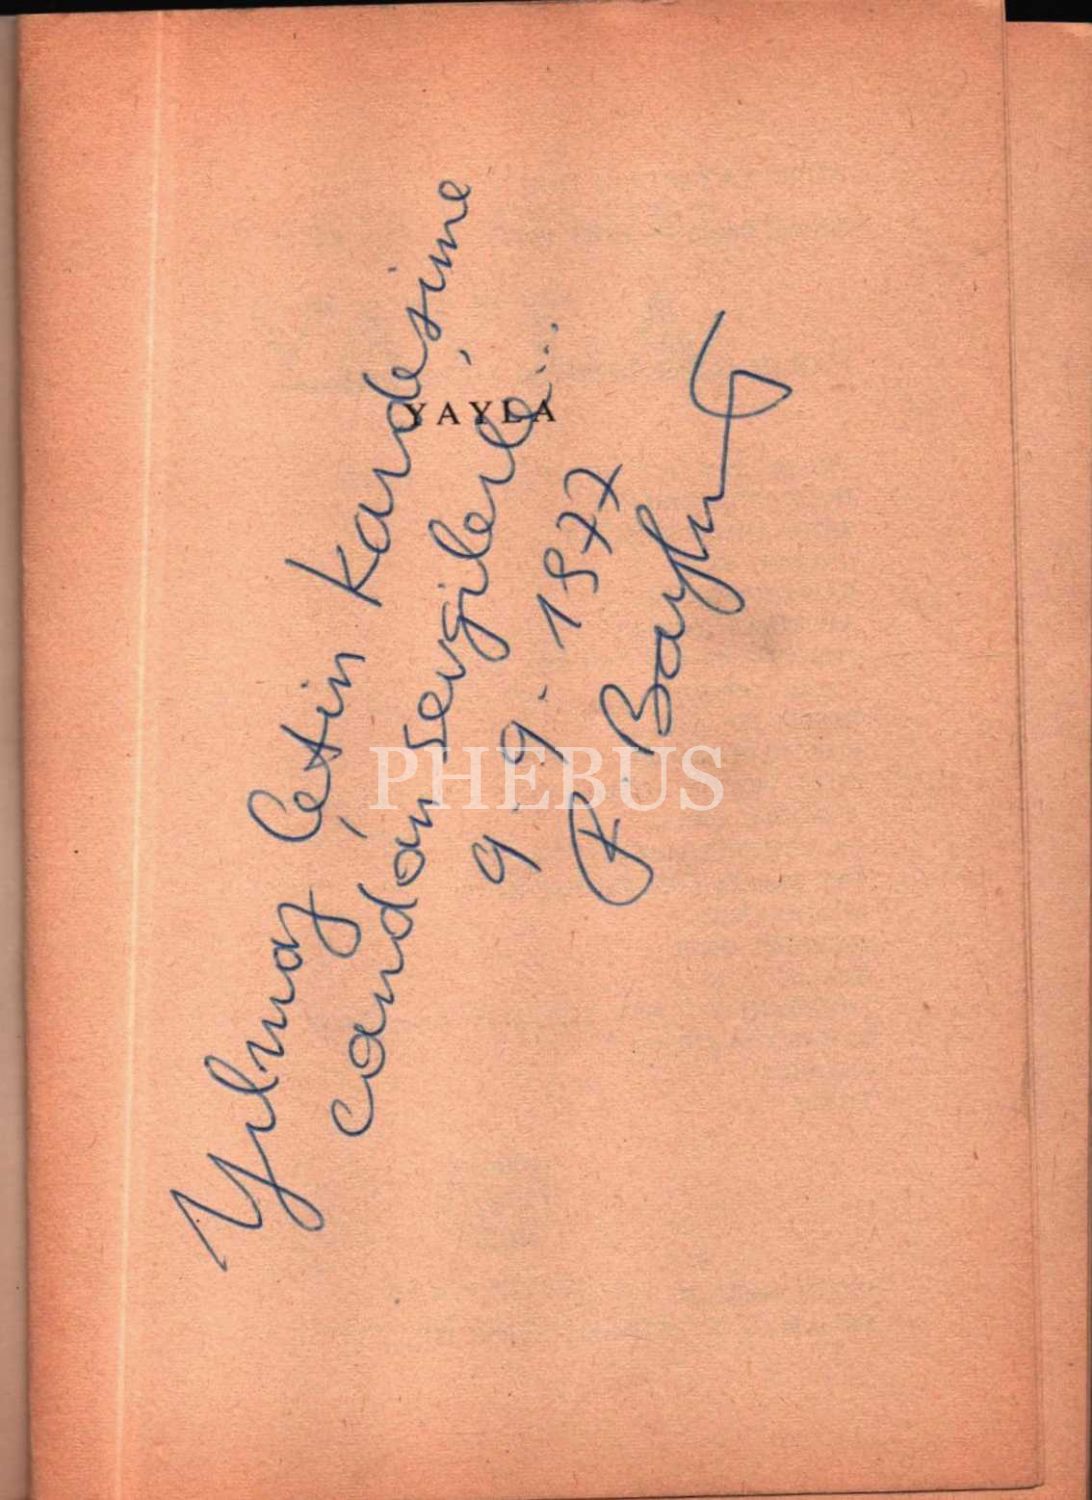 YAYLA
Yılmaz Çetin kardeşime
candan sevgilerle...
9.9.1977
F. Baykurt
PHEBUS